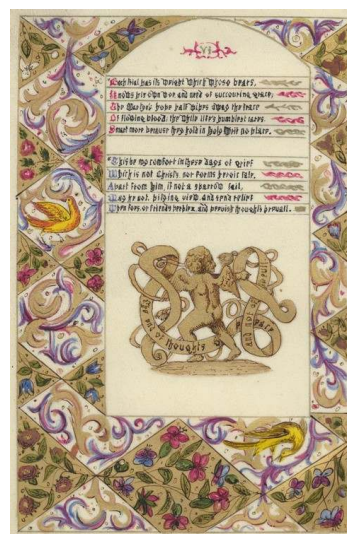 VI
Each trial has its weight which whoso bears,
Knows his own woe and need of succouring grace;
The martyr's hope half wipes away the trace
Of flowing blood; the while life's humblest cares
Smart more because they hold in Holy Writ no place.
This be my comfort in these days of grief
Which is not Christ's, nor forms heroic tale.
Apart from Him, if not a sparrow fail,
May he not pitying view and send relief
When foes or friends perplex, and peevish thoughts prevail.
of thoughts